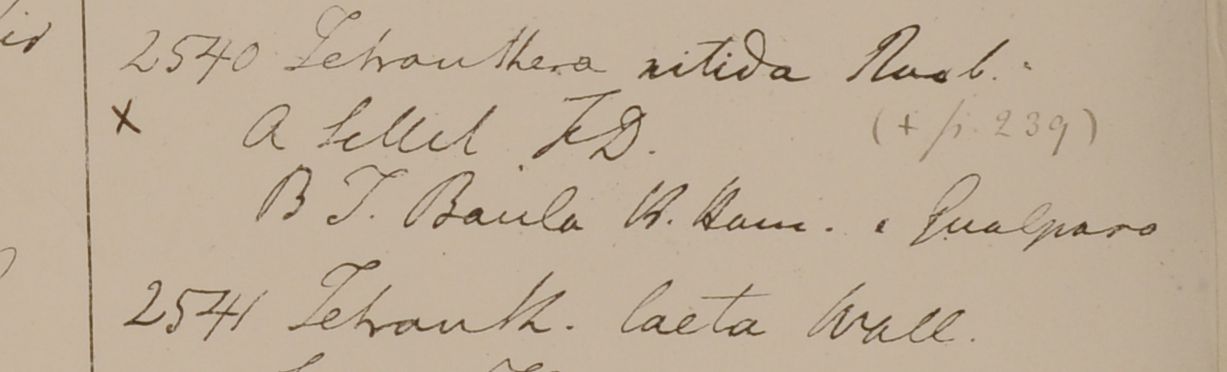 2540 Tetranthera nitida Roxb.
× A Sillet FD. (+ p. 239)
B T. Baula H. Ham. e Gualpara
2541 Tetranth. laeta Wall.